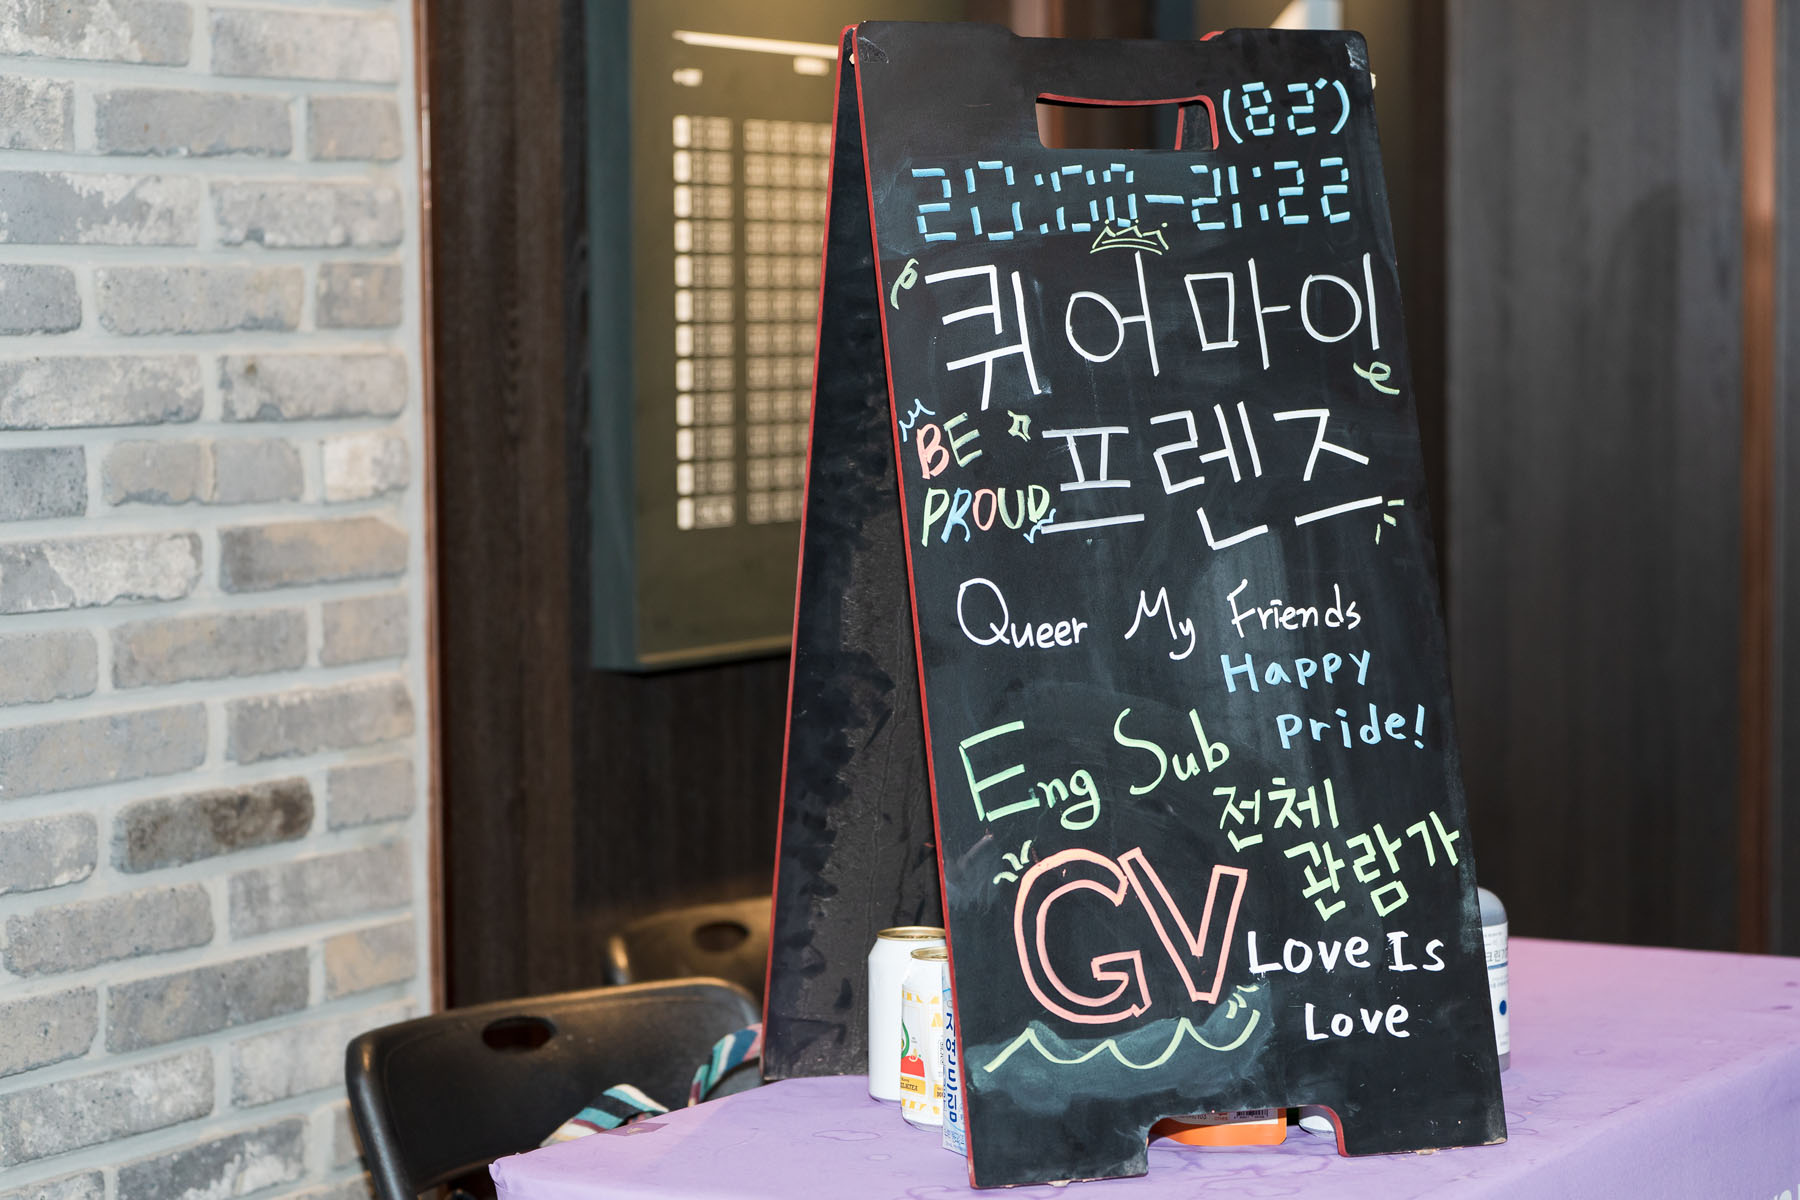 (82')
20:00-21:22
퀴어마이
프렌즈
BE
PROUD
Queer My Friends
Happy
Pride!
Eng Sub
전체
관람가
GV
Love Is
Love